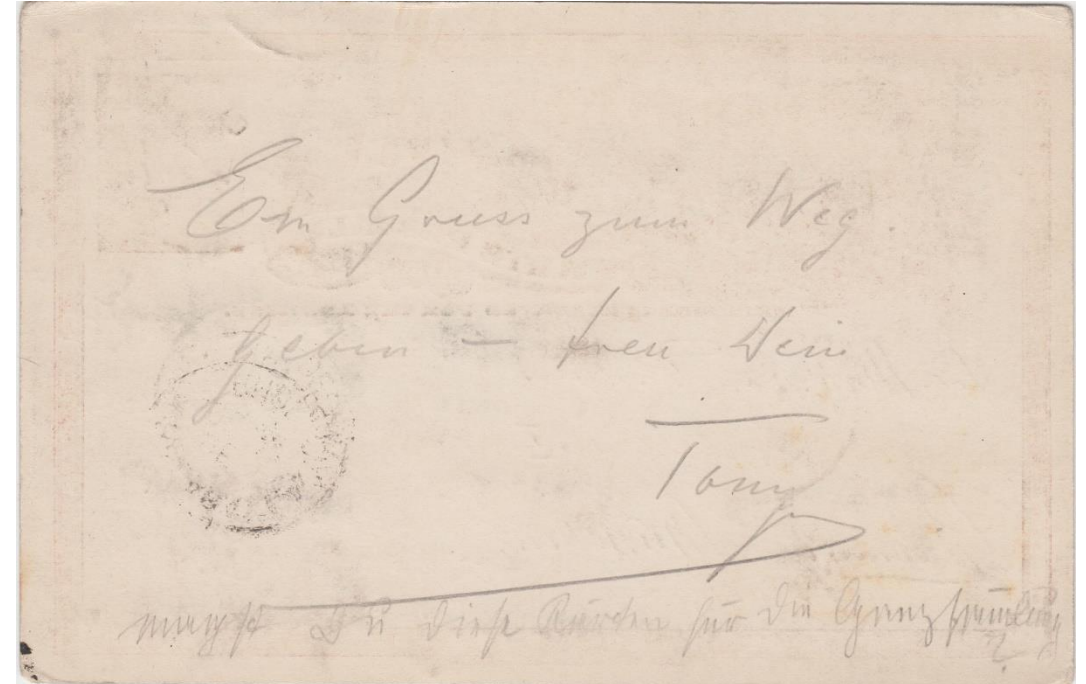 Ein Gruss zum Weg
geben — treu Dein
Tony
magst Du diese Karten für die Ganzsammlung
?